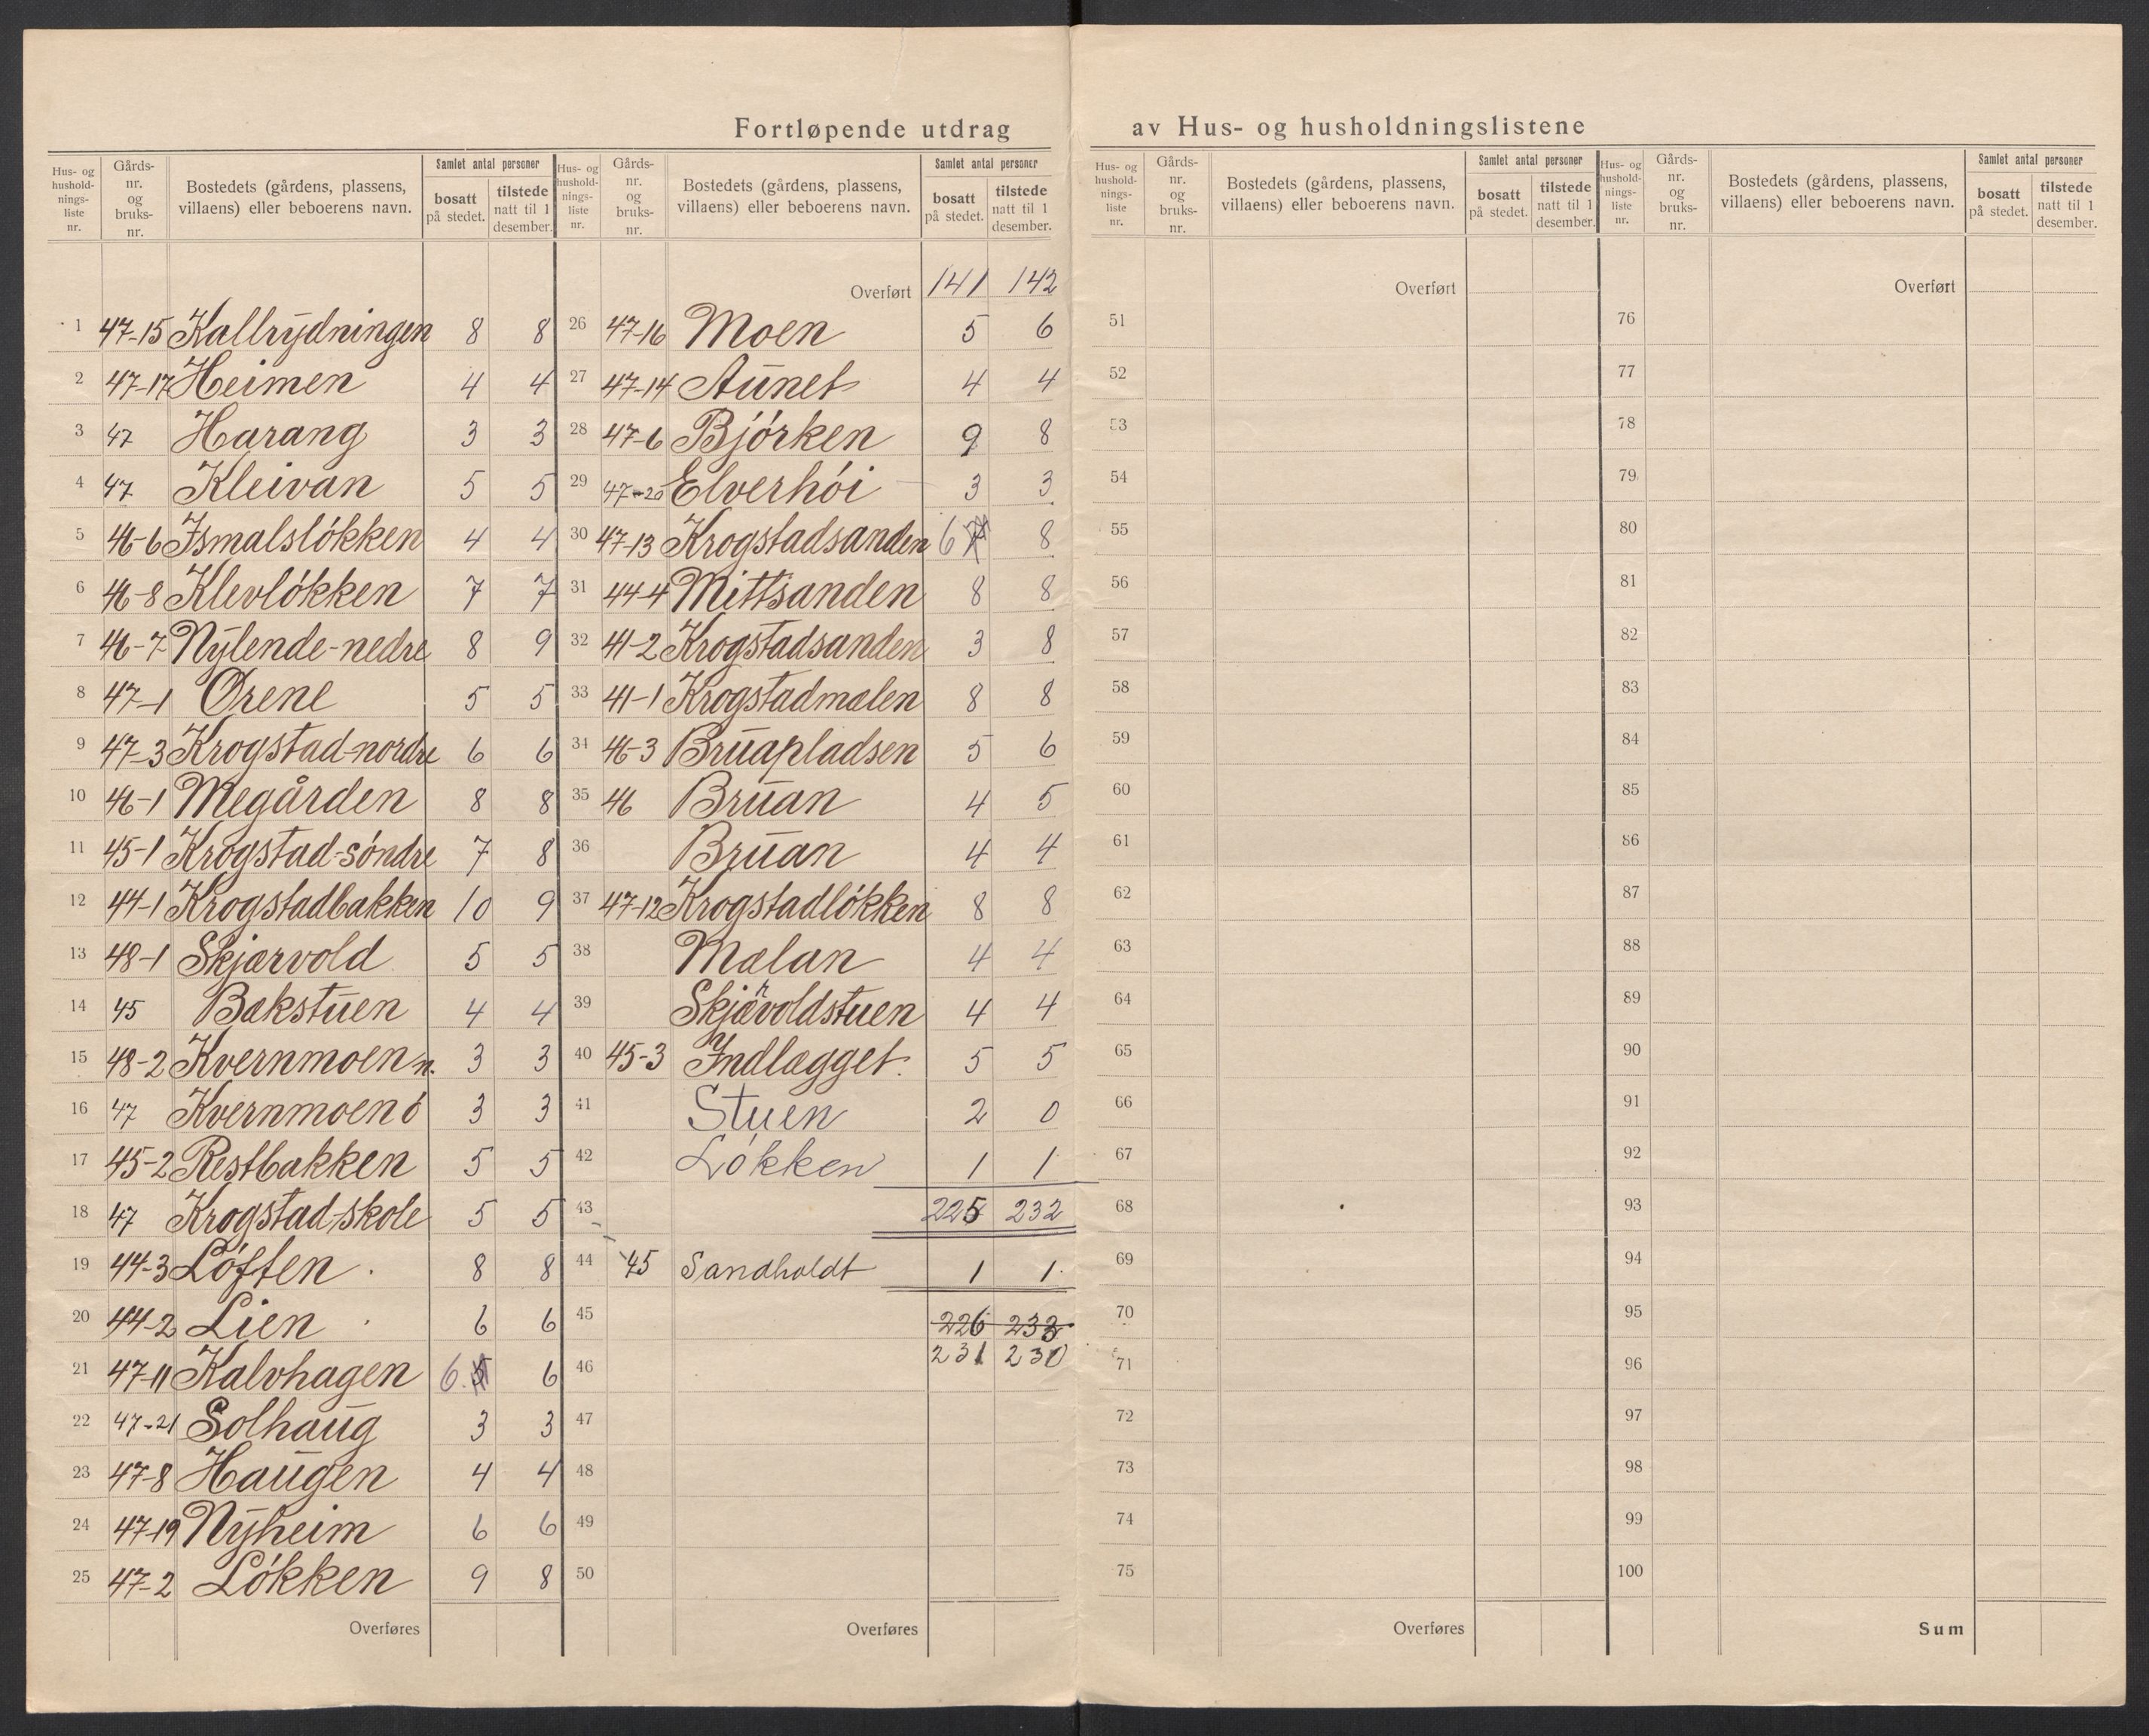 Fortløpende utdrag av Hus- og husholdningslistene
Hus- og hushold-nings-liste nr. | Gårds-nr. og bruks-nr. | Bostedets (gårdens, plassens, villaens) eller beboerens navn. | Samlet antal personer | bosatt på stedet. | tilstede natt til 1 desember.
1 47-15 Kallrydningen 8 8
2 47-17 Heimen 4 4
3 47 Harang 3 3
4 47 Kleivan 5 5
5 46-6 Ismalsløkken 4 4
6 46-8 Klevløkken 7 7
7 46-7 Nylende-nedre 8 9
8 47-1 Ørene 5 5
9 47-3 Krogstad-nordre 6 6
10 46-1 Megården 8 8
11 45-1 Krogstad-søndre 7 8
12 44-1 Krogstadbakken 10 9
13 48-1 Skjærvold 5 5
14 45 Bakstuen 4 4
15 48-2 Kvernmoen n. 3 3
16 47 Kvernmoen ö 3 3
17 45-2 Restbakken 5 5
18 47 Krogstad-skole 5 5
19 44-3 Løften . 8 8
20 44-2 Lien . 6 6
21 47-11 Kalvhagen 6 6
22 47-21 Solhaug 3 3
23 47-8 Haugen 4 4
24 47-19 Nyheim 6 6
25 47-2 Løkken 9 8
Overføres
Hus- og hushold-nings-liste nr. | Gårds-nr. og bruks-nr. | Bostedets (gårdens, plassens, villaens) eller beboerens navn. | Samlet antal personer | bosatt på stedet. | tilstede natt til 1 desember.
Overført 141 142
26 47-16 Moen 5 6
27 47-14 Aunet 4 4
28 47-6 Björken 9 8
29 47-20 Elverhöi 3 3
30 47-13 Krogstadsanden 6 8
31 44-4 Mittsanden 8 8
32 41-2 Krogstadsanden 3 8
33 41-1 Krogstadmælen 8 8
34 46-3 Bruapladsen 5 6
35 46 Bruan 4 5
36 Bruan 4 4
37 47-12 Krogstadløkken 8 8
38 Mælan 4 4
39 Skjærvoldstuen 4 4
40 45-3 Indlægget. 5 5
41 Stuen 2 0
42 Løkken 1 1
43 225 232
44 45 Sandholdt 1 1.
45 226 233
231 230
46
47
48
49
50
Overføres
Hus- og hushold-nings-liste nr. | Gårds-nr. og bruks-nr. | Bostedets (gårdens, plassens, villaens) eller beboerens navn. | Samlet antal personer | bosatt på stedet. | tilstede natt til 1 desember.
Overført
51
52
53
54
55
56
57
58
59
60
61
62
63
64
65
66
67
68
69
70
71
72
73
74
75
Overføres
Hus- og hushold-nings-liste nr. | Gårds-nr. og bruks-nr. | Bostedets (gårdens, plassens, villaens) eller beboerens navn. | Samlet antal personer | bosatt på stedet. | tilstede natt til 1 desember.
Overført
76
77
78
79
80
81
82
83
84
85
86
87
88
89
90
91
92
93
94
95
96
97
98
99
100
Sum